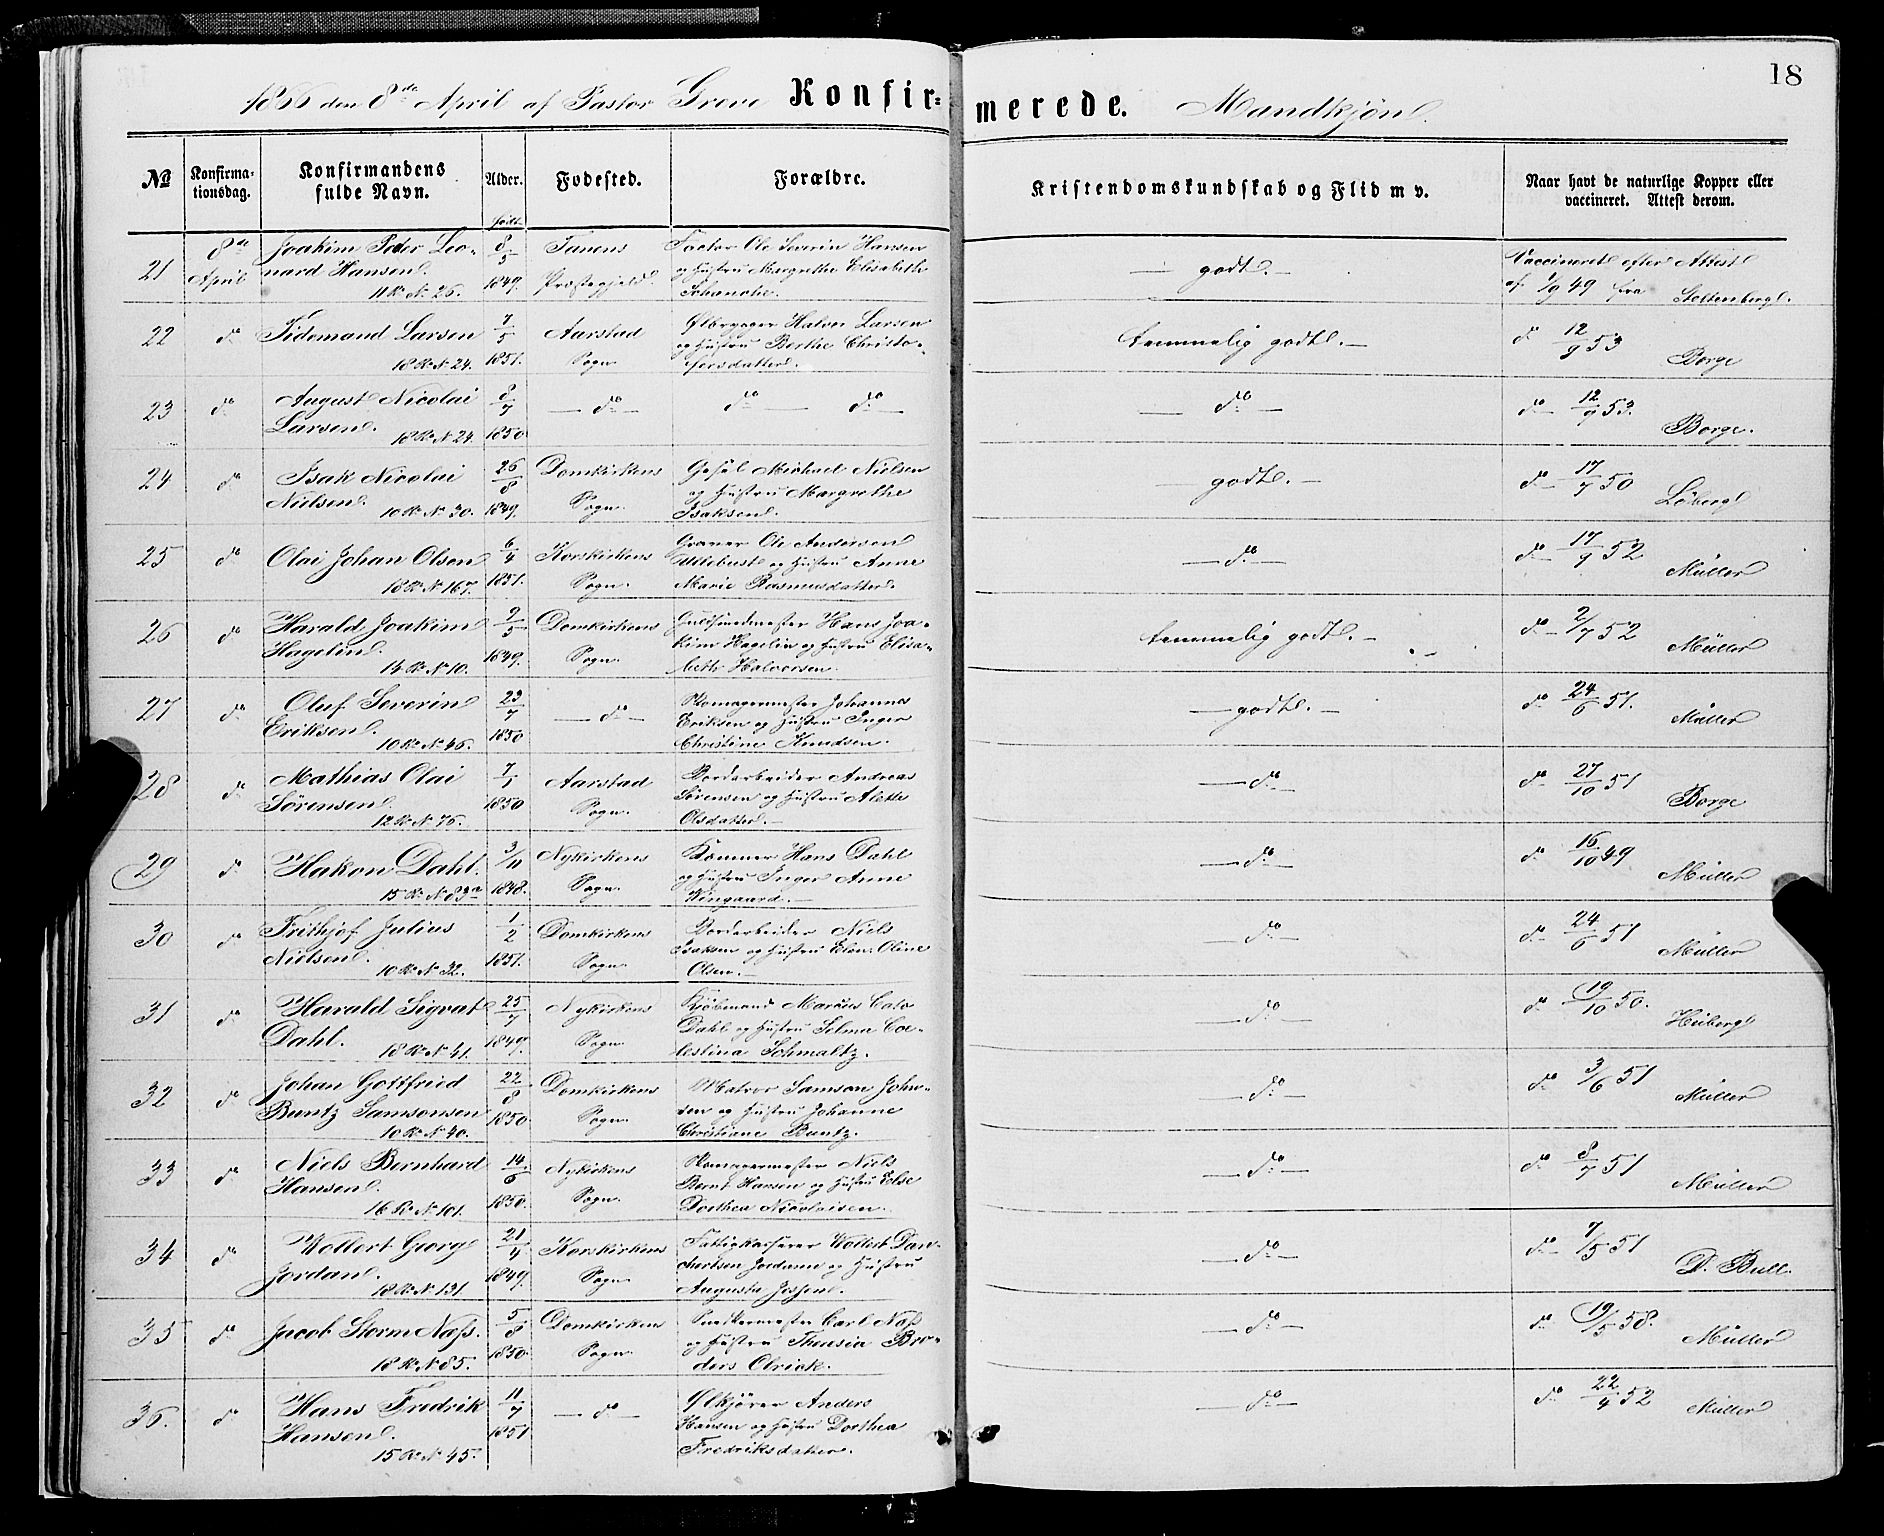 18
1866 den 8de April af Pastor Greve Konfir= merede. Mandkjön.
No Konfirma-tionsdag. Konfirmandens fulde Navn. Alder. Fodested. Forældre. Kristendomskundskab og Flid m v. Naar havt de naturlige Kopper eller vaccineret. Attest derom.
født
21 8de April Joakim Peder Leo-
nard Hansen. 11 R. No 26. 8/5 1849. Tanens Præstegjeld. Factor Ole Severin Hansen
og Hustru Margrethe Elisabeth
— godt. — Vaccineret efter Attest
af 1/9 49 fra Stoltenberg.
22 do Tidemand Larsen
18 R. N. 24. 7/5 1851. Aarstad Sogn. Ølbrygger Halvor Larsen
og Hustru Berthe Christo-
fersdatter. temmelig godt. — do 12/9 53 Borge
23 do August Nicolai
Larsen. 18 R. N 24. 8/7 1850 — do — do — do — — do — do 12/9 53. Borge.
24 do Isak Nicolai
Nielsen. 10 R. No 30. 26/8 1849. Domkirkens Sogn. Michael Nielsen
og Hustru Margrethe
Isaksen. — godt. — do 17/7 50 Löberg
25 do Olai Johan Olsen
18 R. N 167. 6/4 1851. Korskirkens Sogn. Graver Ole Andersen
og Hustru Anne
Marie Rasmusdatter. — do — do 17/9 52 Müller
26 do Harald Joakim
Hagelin. 14 R. N. 10. 9/5 1849. Domkirkens Sogn. Guldsmedmester Hans Joa-
kim Hagelin og Hustru Elisa-
beth Halvorsen. temmelig godt. — do 2/7 52 Müller
27 do Oluf Severin
Eriksen. 10 R. N. 46. 23/7 1850 — do — Skomagermester Johannes
Eriksen og Hustru Inger
Christine Knudsen. — godt. — do 24/6 51. Müller
28 do Mathias Olai
Sørensen. 12 R. N. 76. 7/1 1850 Aarstad Sogn. Bordarbeider Andreas
Sørensen og Hustru Alette
Olsdatter. — do — do 27/10 51 Borge
29 do Hakon Dahl.
15 R. N. 83a 3/11 1848. Nykirkens Sogn. Hans Dahl
og Hustru Inger Anne
Wingaard. — do — do 16/10 49 Müller
30 do Frithjof Julius
Nielsen. 10 R. N. 32. 1/2 1851. Domkirkens Sogn. Bordarbeider Niels
Isaksen og Hustru Oline
Olsen. — do — do 24/6 51 Müller
31 do Harald Sigvat
Dahl. 18 R. N. 41. 25/7 1849. Nykirkens Sogn. Kjöbmand Marcus Calv
Dahl og Hustru Selma Coe-
lestina Schmaltz. — do — do 19/10 50.
32 do Johan Gottfried
Buntz Samsonsen
10 R. N. 40. 22/8 1850 Domkirkens Sogn. Matros Samson John-
sen og Hustru Johanne
Christiane Buntz. — do — do 3/6 51 Müller
33 do Niels Bernhard
Hansen. 16 R. N. 101. 14/6 1850. Nykirkens Sogn. Skomagermester Niels
Bernt Hansen og Hustru Else
Dorthea Nicolaisen. — do — do 8/7 51 Müller
34 do Wollert Georg
Jordan. 18 R. N. 131 21/4 1849. Korskirkens Sogn. Fattigkasserer Wollert Dan-
chertsen Jordann og Hustru
Augusta — do — do 7/5 51 D. Bull.
35 do Jacob Storm Næss.
18 R. N. 85. 5/8 1850. Domkirkens Sogn. Snedkermester Carl Næss
og Hustru Bro-
ders Olrick. — do — do 19/5 58. Müller
36. do Hans Fredrik
Hansen. 15 R. N. 45. 11/7 1851 — do — Ølkjører Anders
Hansen og Hustru Dorthea
Fredriksdatter. — do — do 22/4 52 Müller